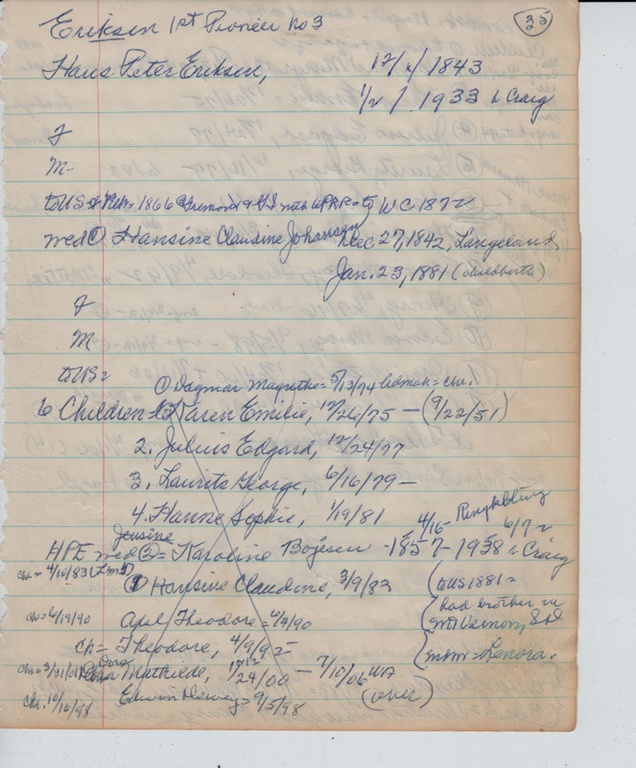 35
Eriksen 1st Pioneer no 3
Hans Peter Eriksen, 12/ / 1843
1/2/ 1933 Craig
F
M-
to US + Nebr 1866 Fremont + GI with UPRR = WC 1872
med ① Hansine Claudine Johansen Dec 27, 1842, Langeland
Jan. 23, 1881 (childbirth)
F
M
to US =
① Dagmar Magrethe = 5/13/74 = chr.
6 Children = Karen Emilie, 12/26/75 — (9/22/51)
2. Julius Edgard, 12/24/77
3. Laurits George, 6/16/79 —
4. Hanne Sophie, 1/19/81
4/16 - Ringkobing 6/92
HPE med ② = Jensine Karoline Bojesen - 1857 - 1938 Craig
chr = 4/10/83 ① Hansine Claudine, 3/9/83
(to US 1881 =
had brother in
Mt Vernon, SD
chr = 6/19/90 Axel Theodore = 2/4/90
ch = Theodore, 4/9/92
(mom = Lenora.
chr = 3/31/01 Dora Mathiede, 1/24/00 — 7/10/06 WA
(over)
chr. 10/16/98 Edwin Harvey = 9/5/98